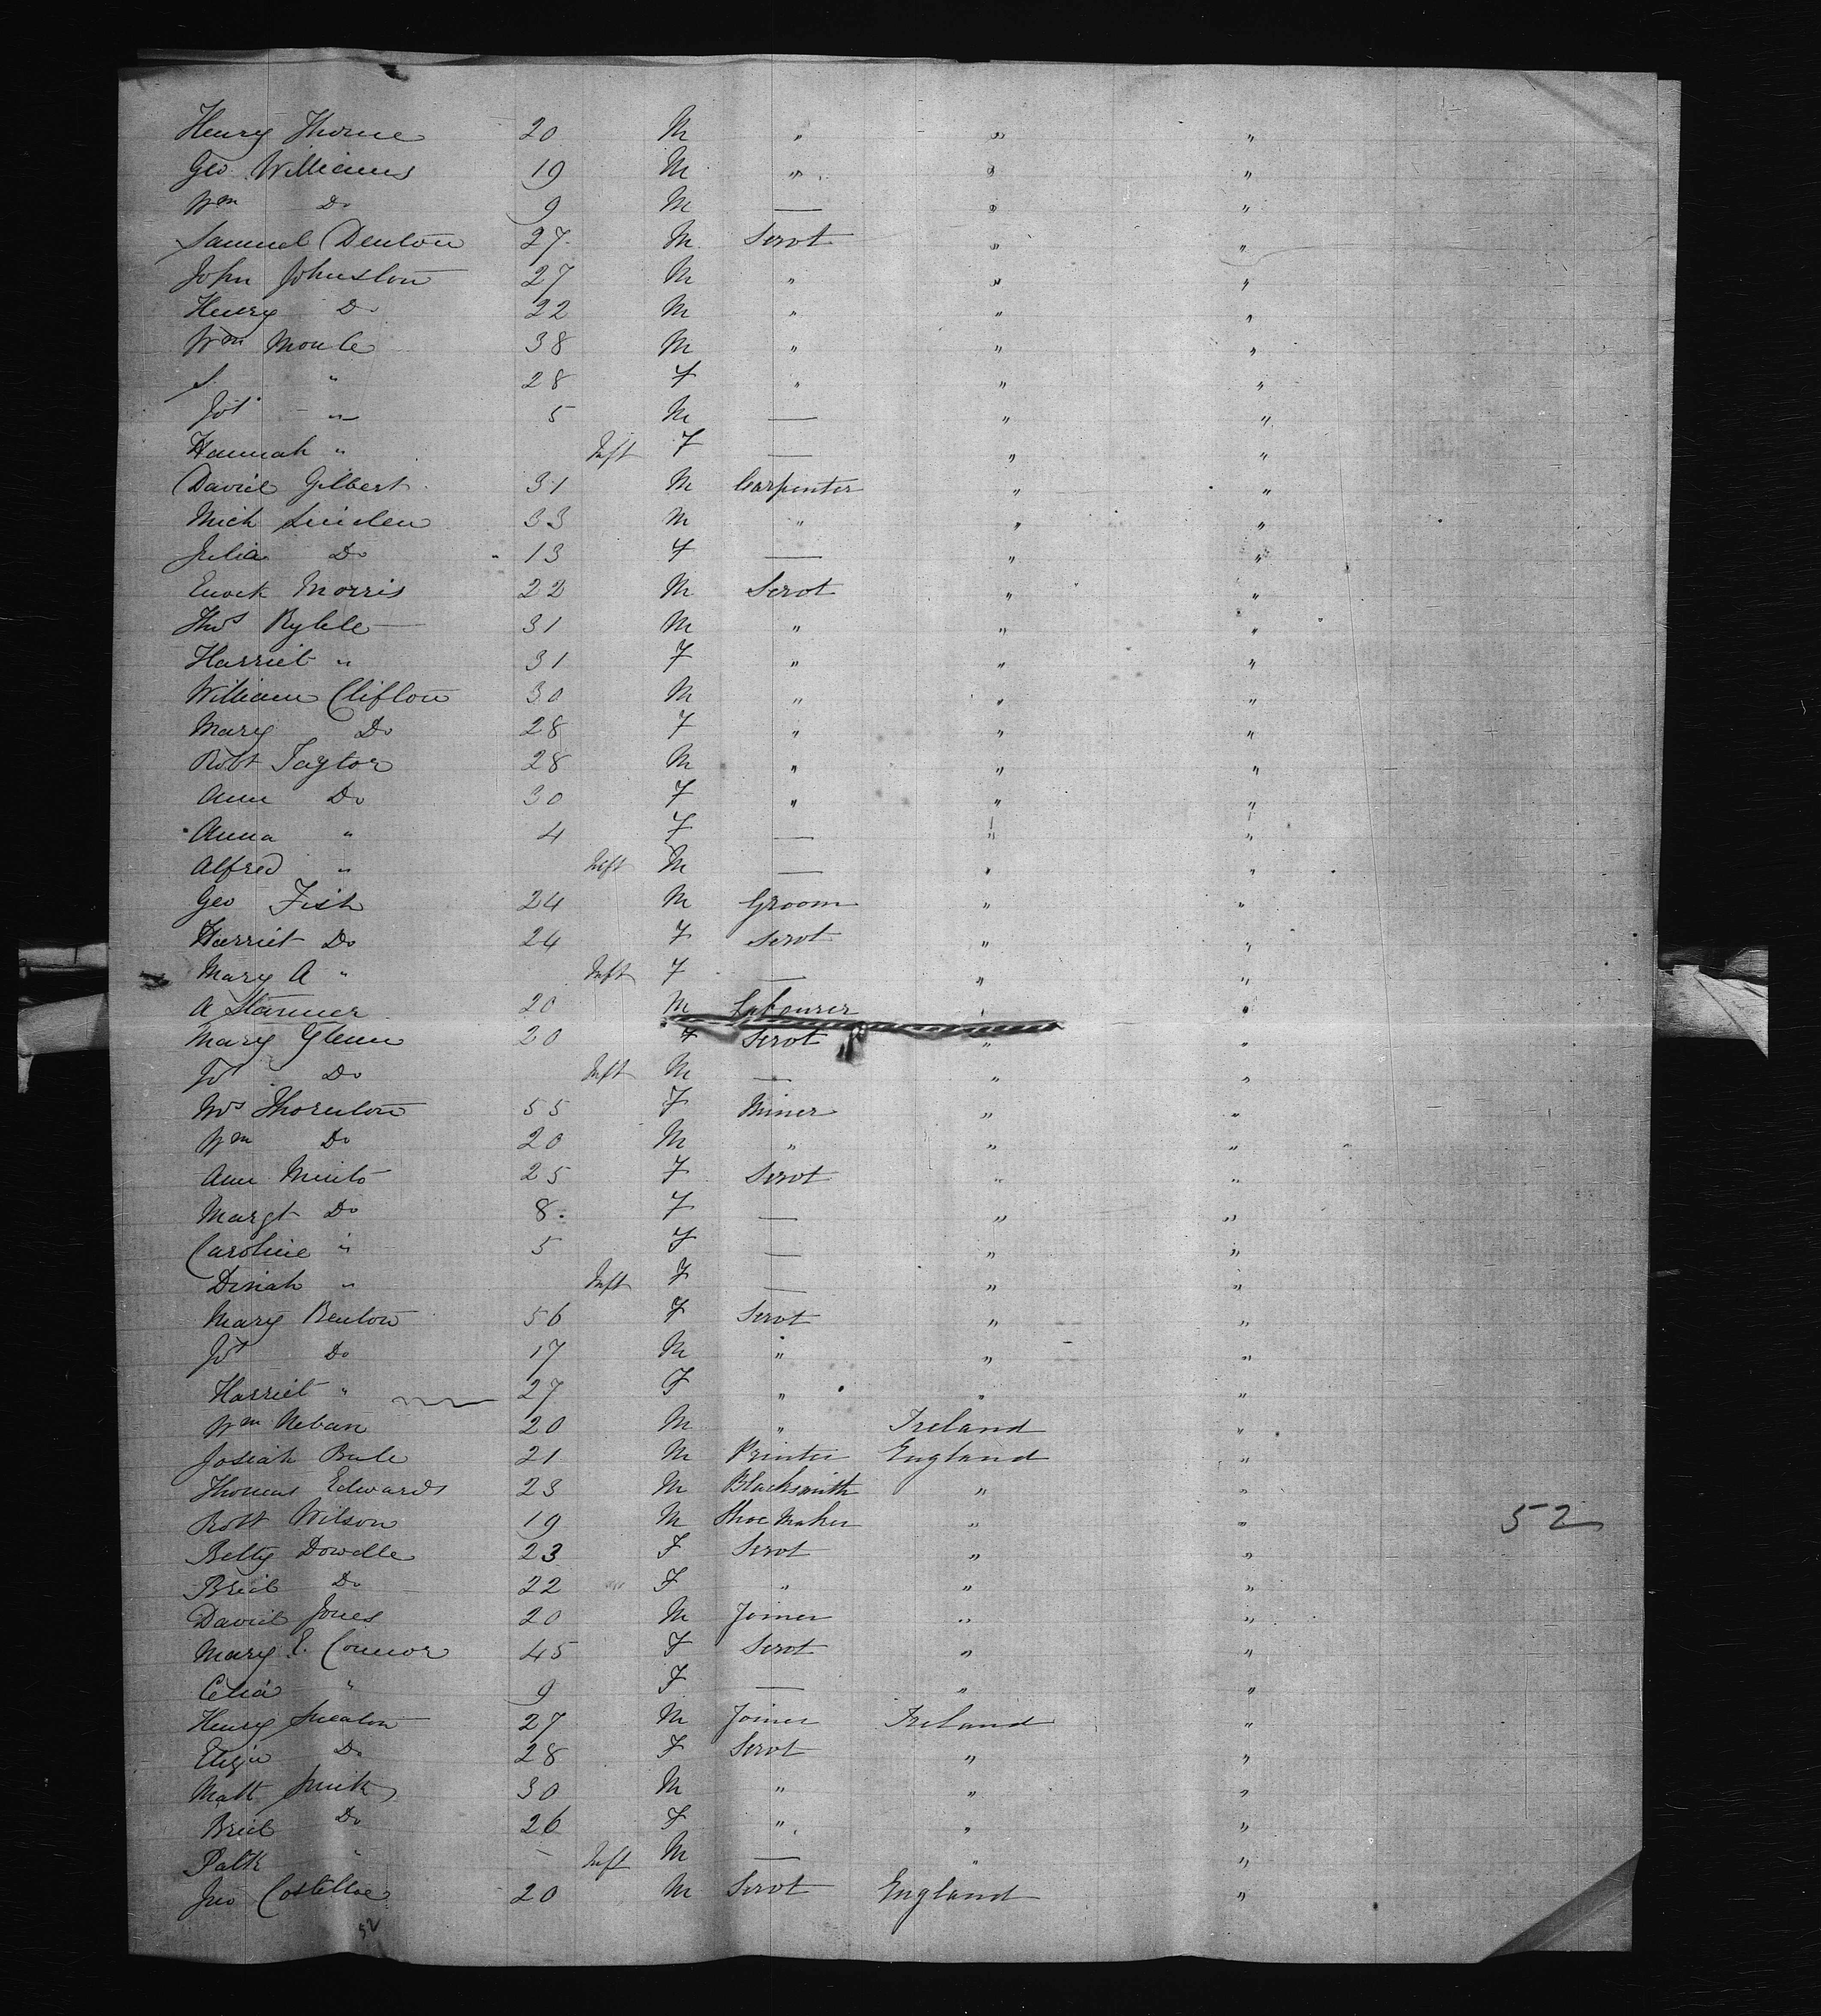 Henry Thorne 20 M " " "
Geo Williams 19 M " " "
Wm Do 9 M — " "
Samuel Denton 27 M Servt " "
John Johnston 27 M " " "
Henry Do 22 M " " "
Wm Moule 38 M " " "
S. " 28 F " " "
Jos " 5 M — " "
Hannah " Inft F — " "
David Gilbert 31 M Carpenter " "
Mich 33 M " " "
Julia Do 13 F — " "
Enoch Morris 22 M Servt " "
Thos 31 M " " "
Harriet " 31 F " " "
William Clifton 30 M " " "
Mary Do 28 F " " "
Robt Taylor 28 M " " "
Ann Do 30 F " " "
Anna " 4 F — " "
Alfred " Inft M — " "
Geo Fish 24 M Groom " "
Harriet Do 24 F Servt " "
Mary A " Inft F — " "
A Stanner 20 M Labourer " "
Mary Glenn 20 F Servt " "
Do Inft M — " "
Mrs Thornton 55 F Miner " "
Wm Do 20 M " " "
Ann Minto 25 F Servt " "
Margt Do 8 F — " "
Caroline " 5 F — " "
Dinah " Inft F — " "
Mary Benton 56 F Servt " "
Do 17 M " " "
Harriet " 27 F " " "
Wm 20 M " Ireland "
Josiah 21 M Printer England "
Thomas Edwards 23 M Blacksmith " "
Robt Wilson 19 M Shoe Maker " " 52
Betty Dowdle 23 F Servt " "
Brid Do 22 F " " "
David Jones 20 M Joiner " "
Mary E. Connor 45 F Servt " "
Celia " 9 F — " "
Henry 27 M Joiner Ireland "
Eliza Do 28 F Servt " "
Matt Smith 30 M " " "
Brid Do 26 F " " "
Patk " - Inft M — " "
Jno Costelloe 20 M Servt England "
52